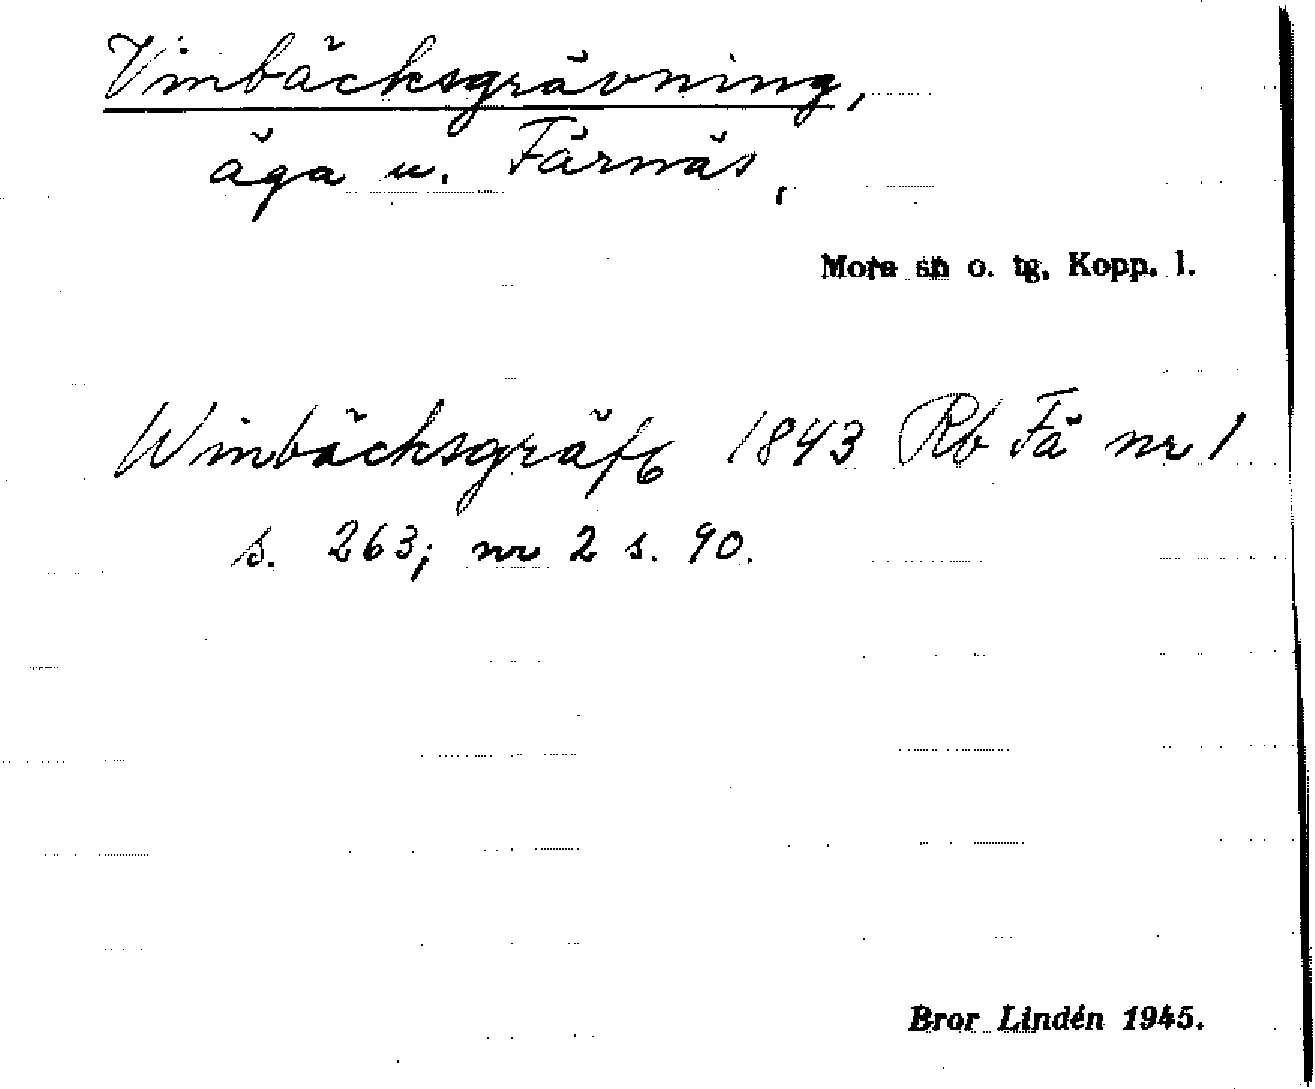 Vinbäcksgrävning,
äga u. Färnäs,
Mora sn o. tg, Kopp. l.
Winbäcksgräfg 1843 Rb Fä nr 1
s. 263; nr 2 s. 90.
Bror Lindén 1945.